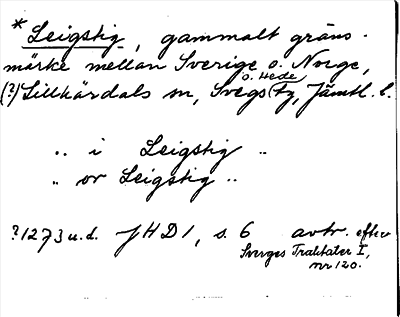 * Leigstig, gammalt gräns-
märke mellan Sverige o. Norge,
o. Hede
(?) Lillhärdals sn, Svegs tg, Jämtl. l.
.. i Leigstig ..
.. or Leigstig ..
?1273 u.d. JHD 1, s. 6 avtr. efter
Sverges Traktater I,
nr 120.